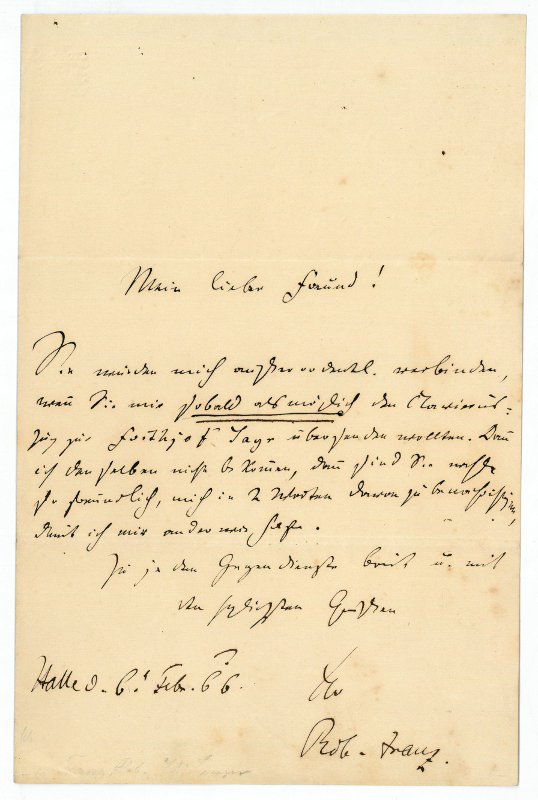 Mein lieber Freund!
Sie würden mich außerordentl. verbinden,
wenn Sie mir sobald als möglich den Clavieraus-
zug zur Frithjof Sage übersenden wollten. Kann
ich denselben nicht bekommen, dann sind Sie wohl
so freundlich, mich in 2 Worten davon zu benachrichtigen,
damit ich mir anderweit helfe.
Zu jedem Gegendienste bereit u. mit
den Grüßen
Halle d. 6t Febr. 66.
Ihr
Rob. Franz.